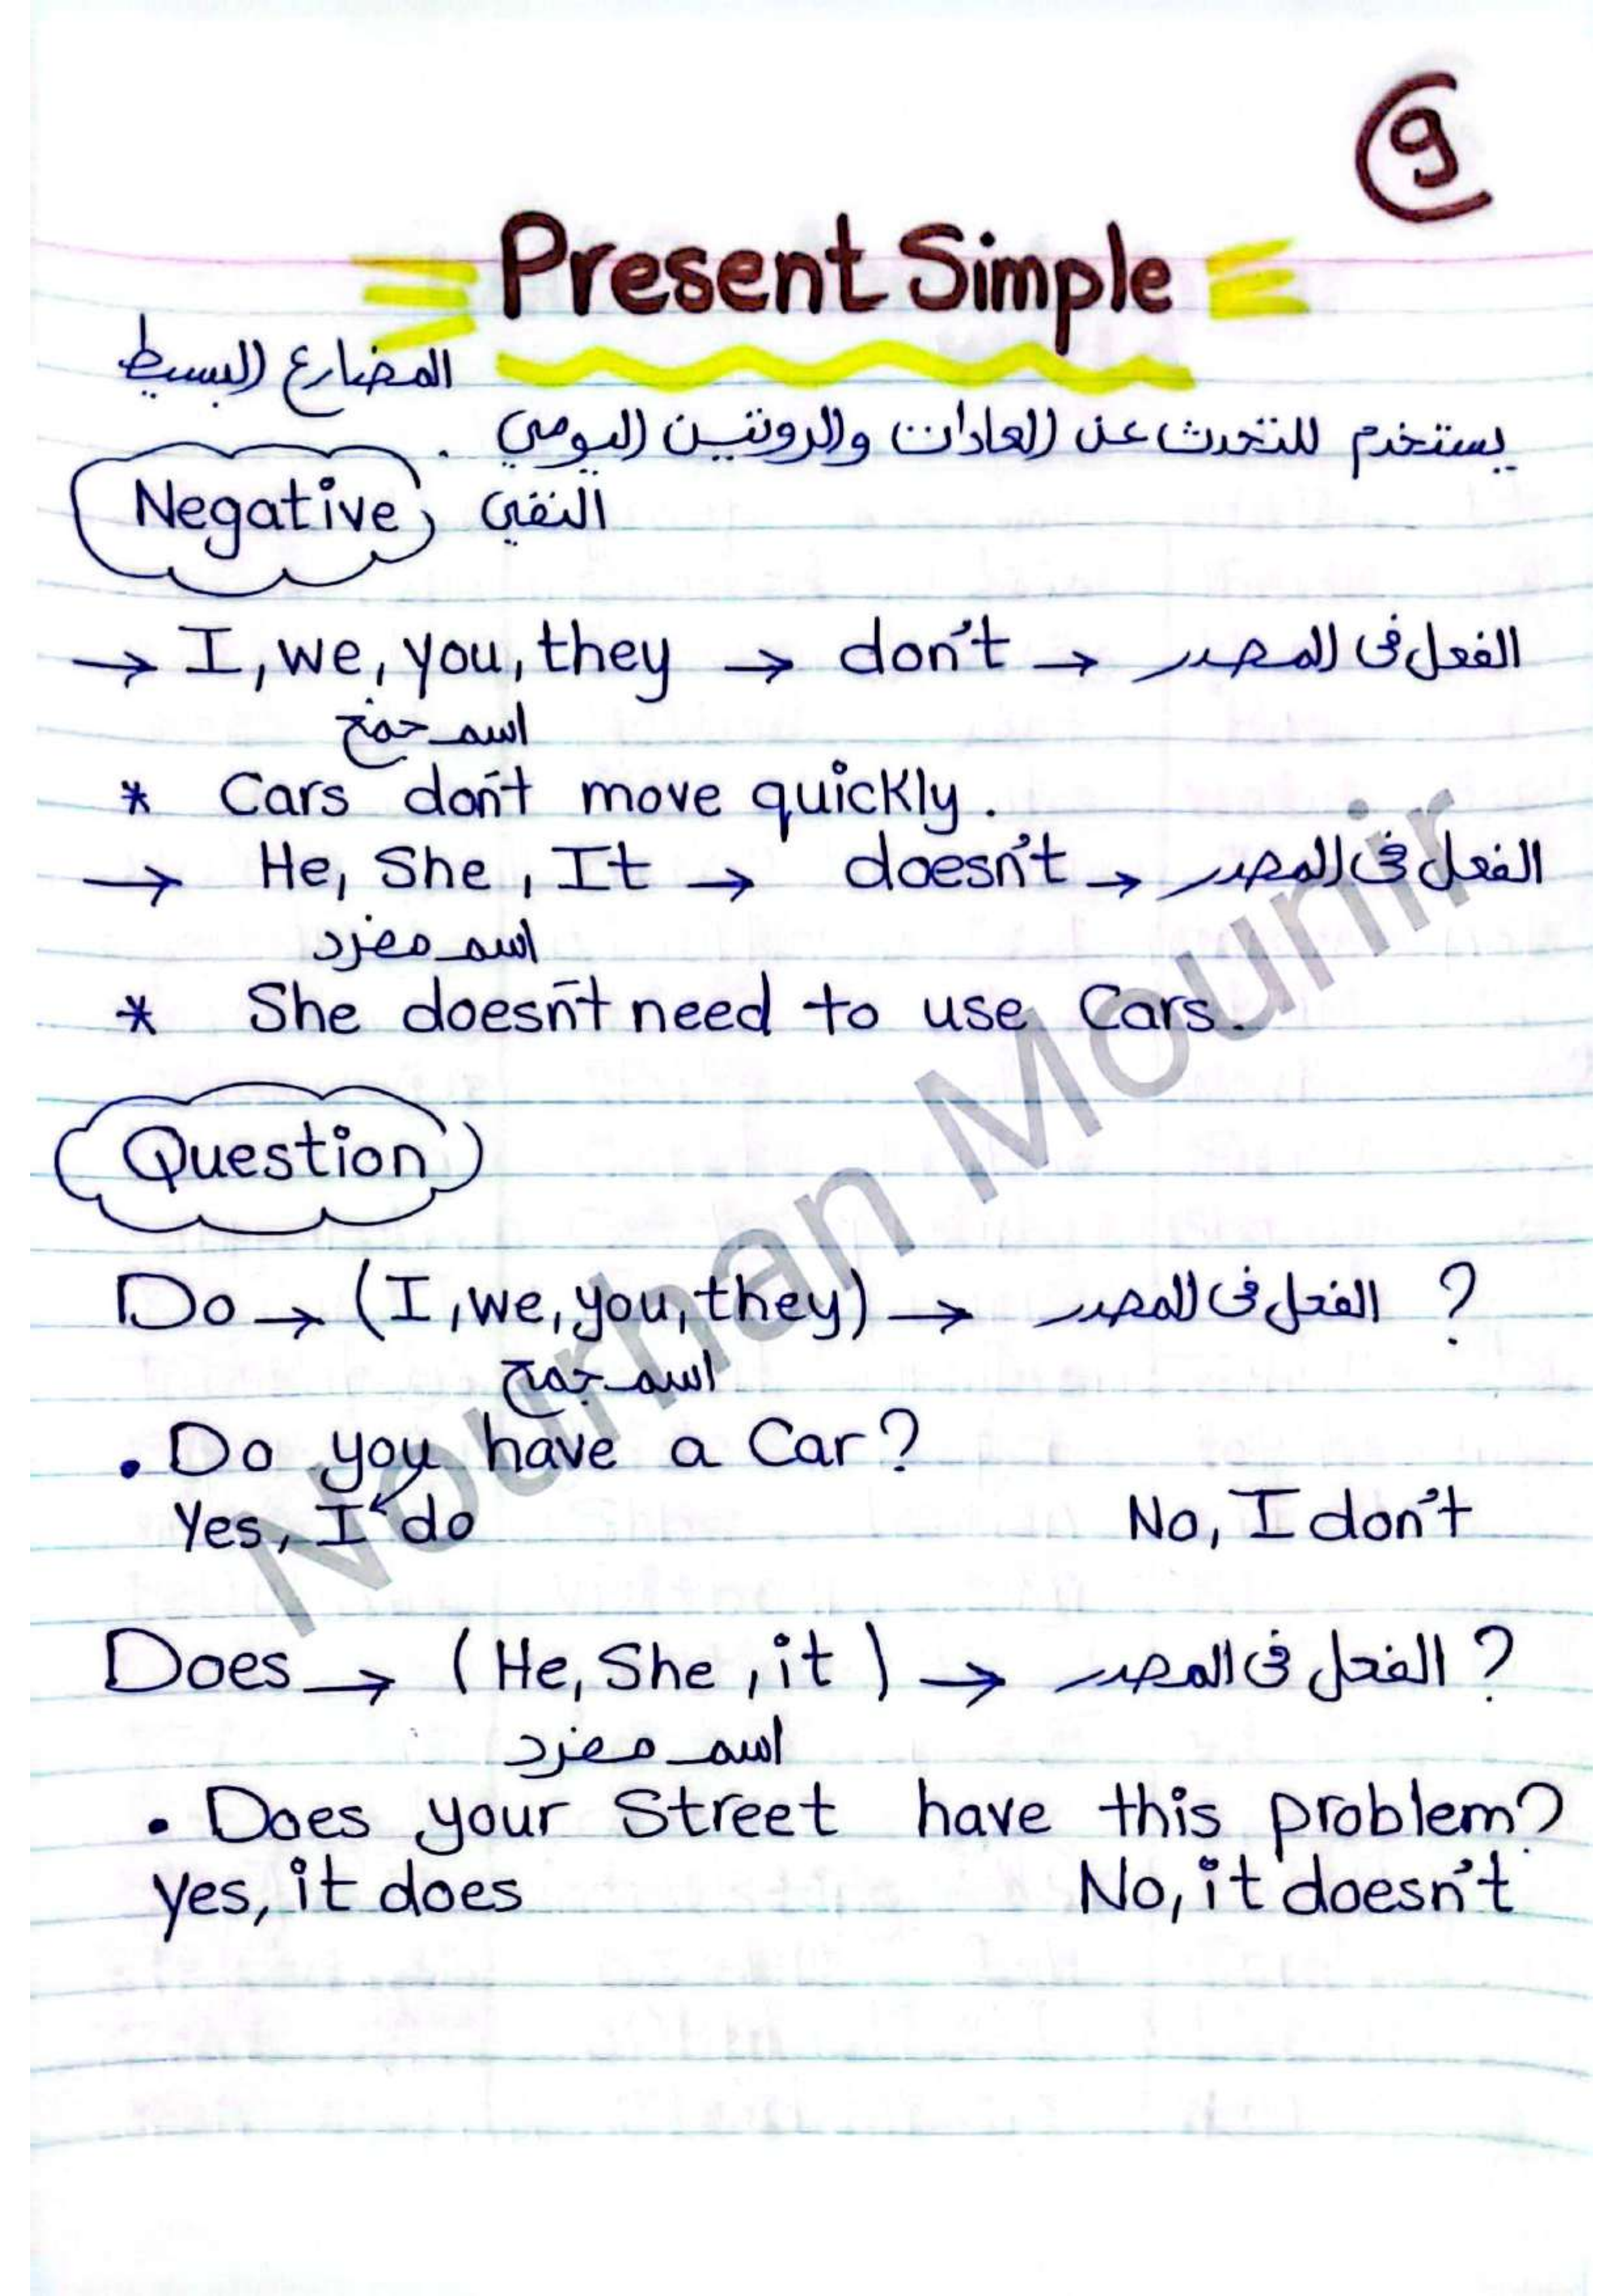 9
Present Simple
المضارع البسيط
يستخدم للتحدث عن العادات والروتين اليومي .
Negative النفي
→ I, we, you, they → don't → الفعل في المصدر
اسم جمع
* Cars don't move quickly.
→ He, She, It → doesn't → الفعل في المصدر
اسم مفرد
* She doesn't need to use Cars.
Question
Do → (I, we, you, they) → الفعل في المصدر ?
اسم جمع
• Do you have a Car?
Yes, I do No, I don't
Does → (He, She, it) → الفعل في المصدر ?
اسم مفرد
• Does your Street have this problem?
yes, it does No, it doesn't
Nourhan Mounir